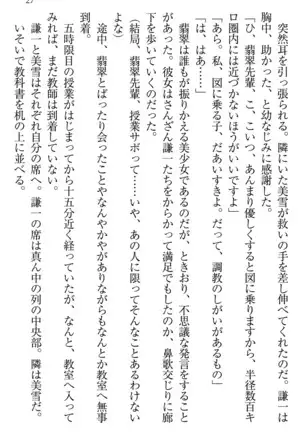 27
突然耳を引っ張られる。隣にいた美雪が救いの手を差し伸べてくれたのだ。謙一は
胸中、助かった、と幼なじみに感謝した。
「ひ、翡翠先輩。こ、こいつ、あんまり優しくすると図に乗りますから、半径数百キ
ロ圏内には近づかないほうがいいですよ」
「あら。私、図に乗る子、だあいすきよ。だって、調教のしがいがあるもの」
「は、はぁ……」
翡翠は誰もが振りかえる美少女であるのだが、ときおり、不思議な発言をすること
がある。彼女はさんざん謙一たちをからかって満足でもしたのか、鼻歌交じりに廊
下を歩いていくのだった。
（結局、翡翠先輩、授業サボって……いや、あの人に限ってそんなことあるわけない
よな）
途中、翡翠とばったり会ったことやなんやかやがありながらもなんとか教室へ無事
到着。
五時限目の授業がはじまってから十五分近く経っていたが、なんと、教室へ入って
みれば、まだ教師は到着していない。
謙一と美雪はそれぞれ自分の席へ。謙一の席は真ん中の列の中央部。隣は美雪だ。
いそいで教科書を机の上に並べる。